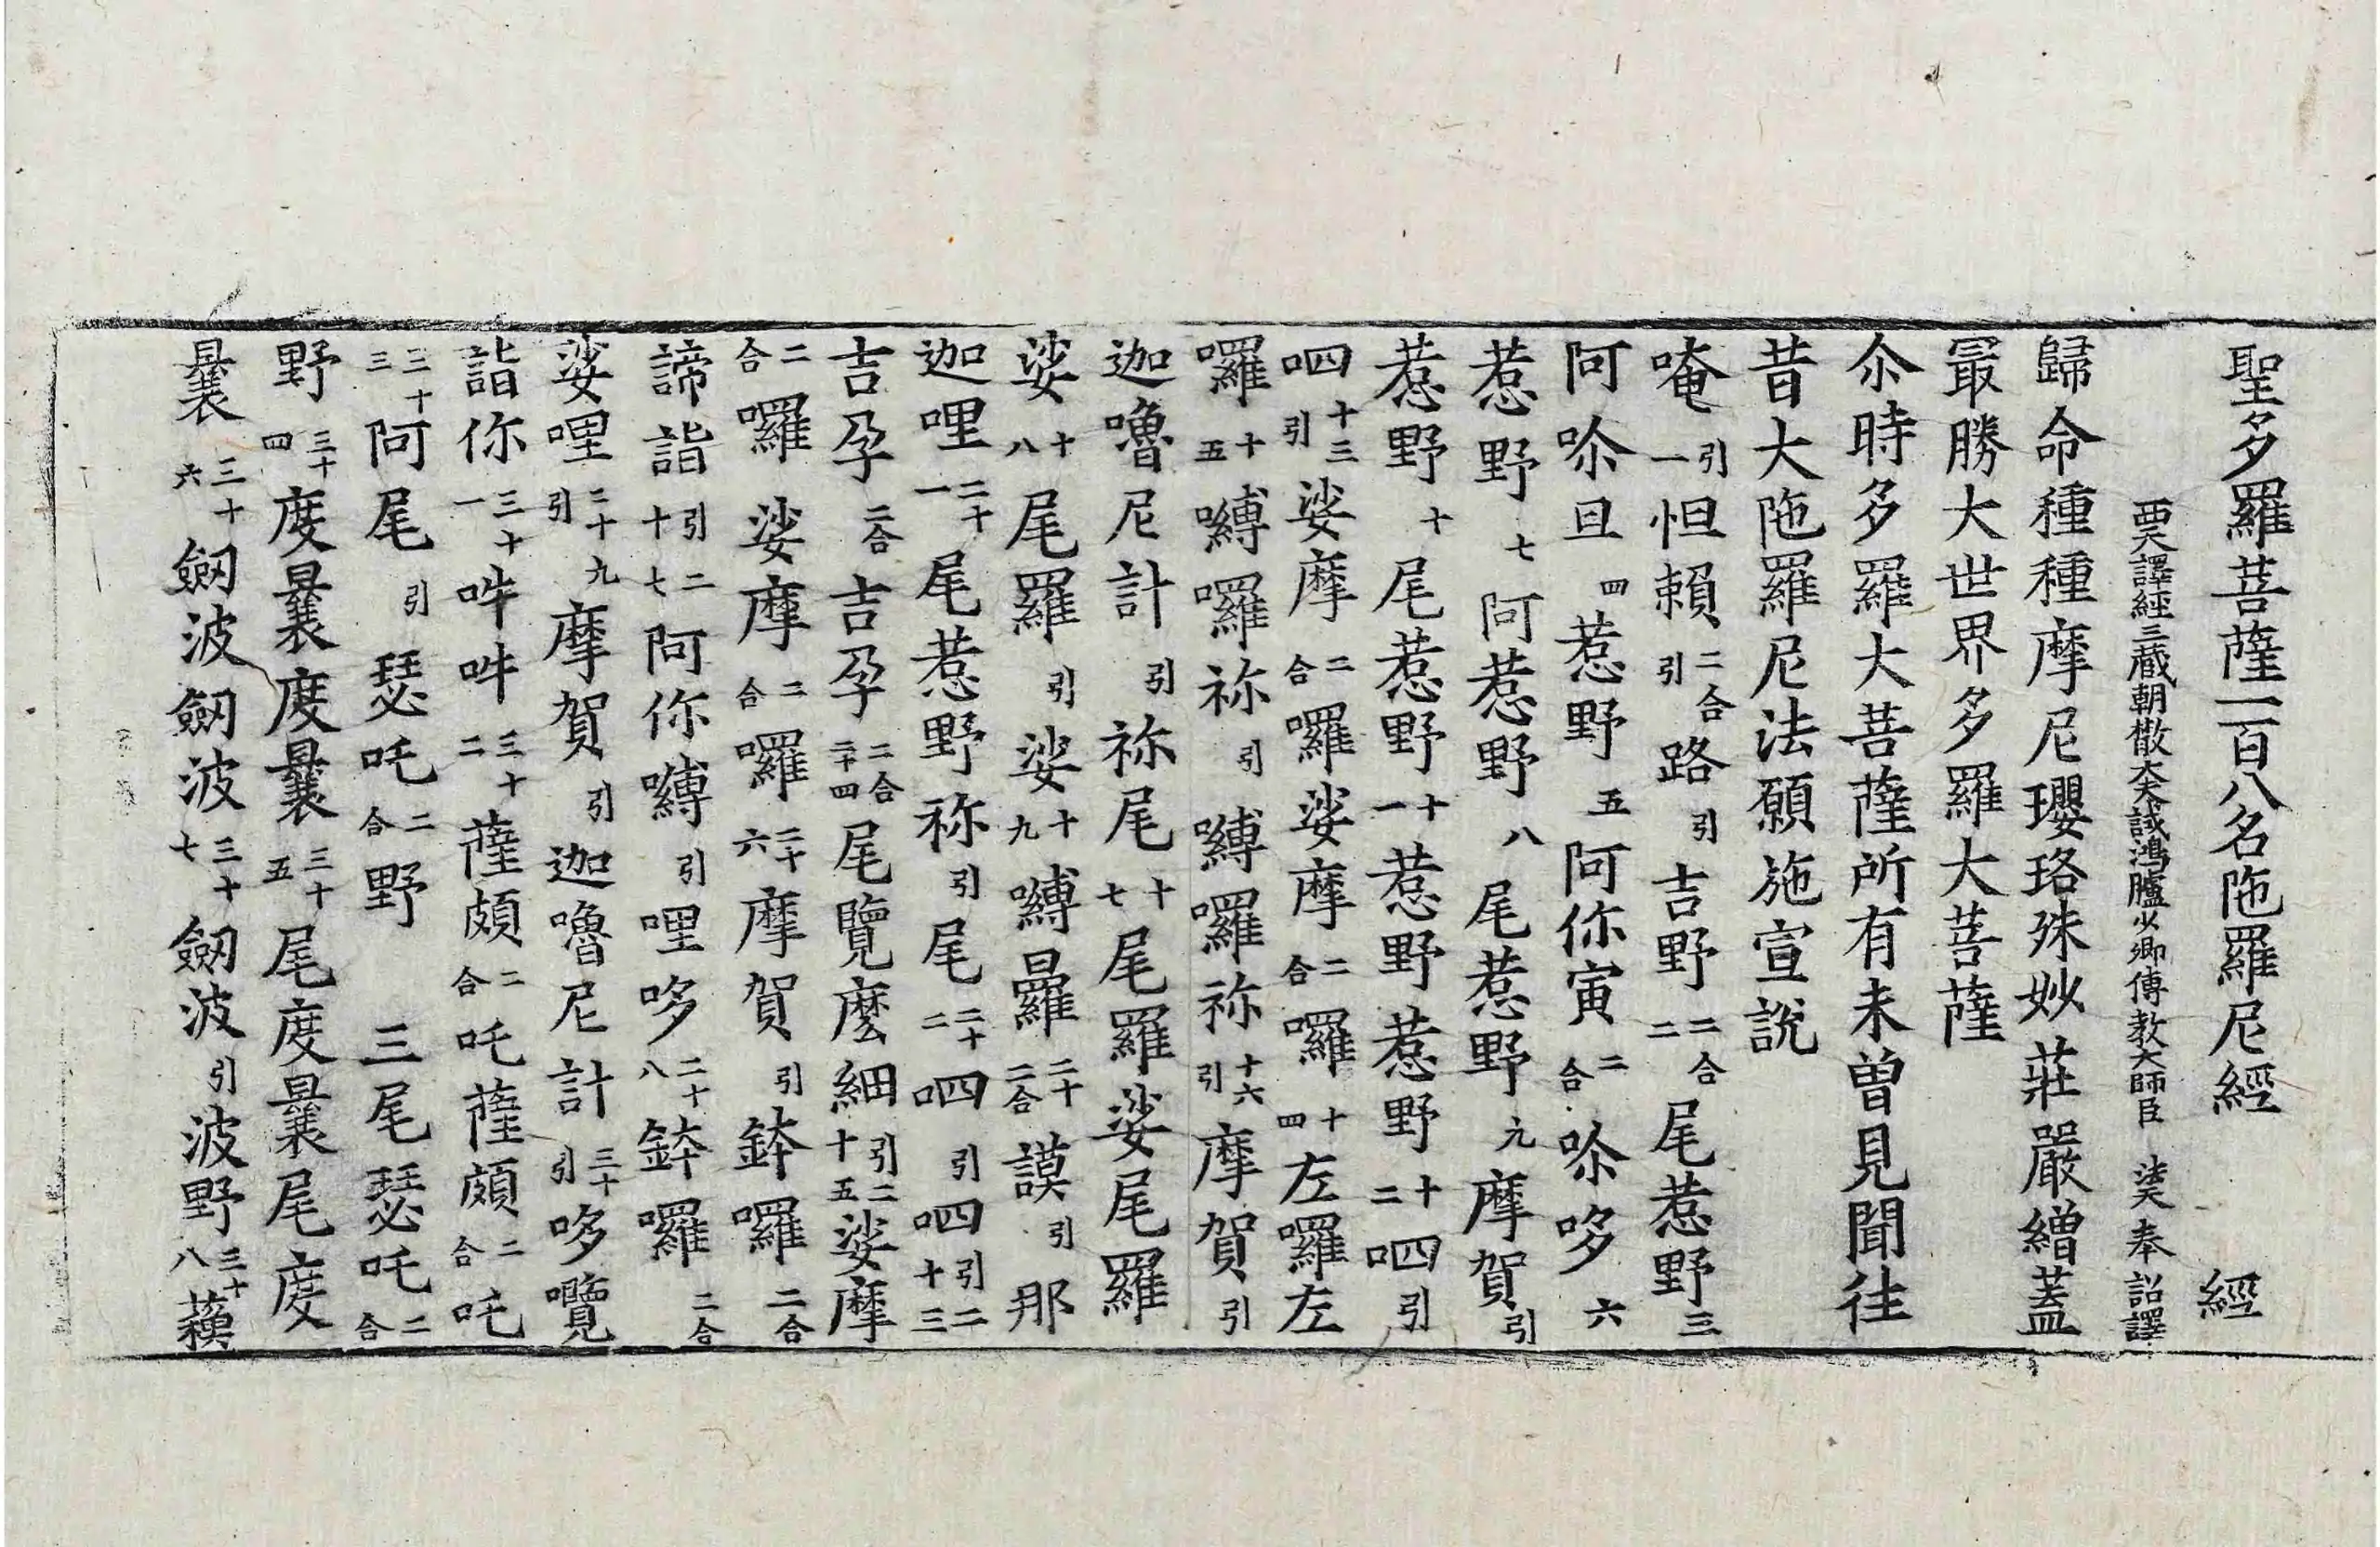 聖多羅菩薩一百八名陁羅尼經 經
西天譯經三藏朝散大夫試鴻臚少卿傳教大師臣法天奉詔譯
歸命種種摩尼瓔珞殊妙莊嚴繒蓋
冣勝大世界多羅大菩薩
尒時多羅大菩薩所有未曾見聞往
昔大陁羅尼法願施宣說
唵引一怛賴二合引路引吉野二合二尾惹野三
阿唋旦四惹野五阿你寅二合唋哆六
惹野七阿惹野八尾惹野九摩賀引
惹野十尾惹野十一惹野惹野十二呬引
呬引十三娑摩二合囉娑摩二合囉十四左囉左
囉十五嚩囉祢引嚩囉祢引十六摩賀引
迦嚕尼計引祢尾十七尾羅娑尾羅
娑十八尾羅引娑十九嚩曰羅二合二十謨引那
迦哩二十一尾惹野祢引尾二十二呬引呬引二十三
吉孕二合吉孕二合二十四尾覽麽細引二十五娑摩
二合囉娑摩二合囉二十六摩賀引鉢囉二合
諦詣引二十七阿你嚩引哩哆二十八鉢囉二合
娑哩引二十九摩賀引迦嚕尼計引三十哆囕
詣你三十一吽吽三十二薩頗二合吒薩頗二合吒
三十三阿尾引瑟吒二合野 三尾瑟吒二合
野三十四度曩度曩三十五尾度曩尾度
曩三十六劒波劒波三十七劒波引波野三十八䕶